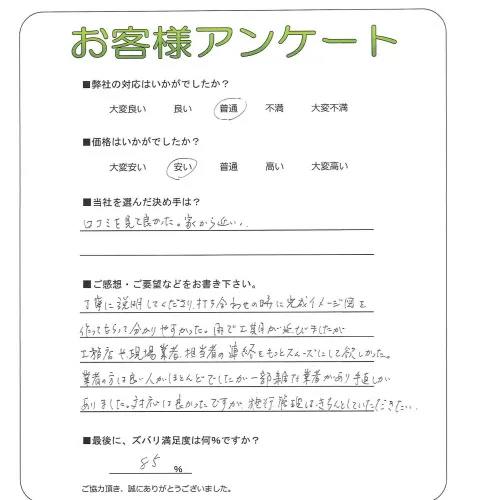 お客様アンケート
■弊社の対応はいかがでしたか？
大変良い 良い 普通 不満 大変不満
■価格はいかがでしたか？
大変安い 安い 普通 高い 大変高い
■当社を選んだ決め手は？
口コミを見て良かった。家から近い。
■ご感想・ご要望などをお書き下さい。
丁寧に説明してくださり、打ち合わせの時に完成イメージ図を
作ってもらって分かりやすかった。雨で工期が延びましたが
工務店や現場業者、担当者の連絡をもっとスムーズにして欲しかった。
業者の方は良い人がほとんどでしたが一部雑な業者があり手直しが
ありました。対応は良かったですが、施行管理はきちんとしていただきたい。
■最後に、ズバリ満足度は何％ですか？
85 ％
ご協力頂き、誠にありがとうございました。